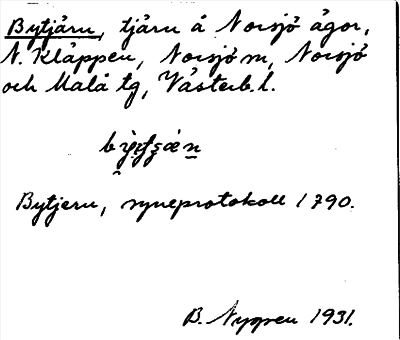 Bytjärn, tjärn å Norsjö ägor,
N. Kläppen, Norsjö m, Norsjö
och Malå tg, Västerb. l.
Bytjern, syneprotokoll 1790.
B. Nygren 1931.